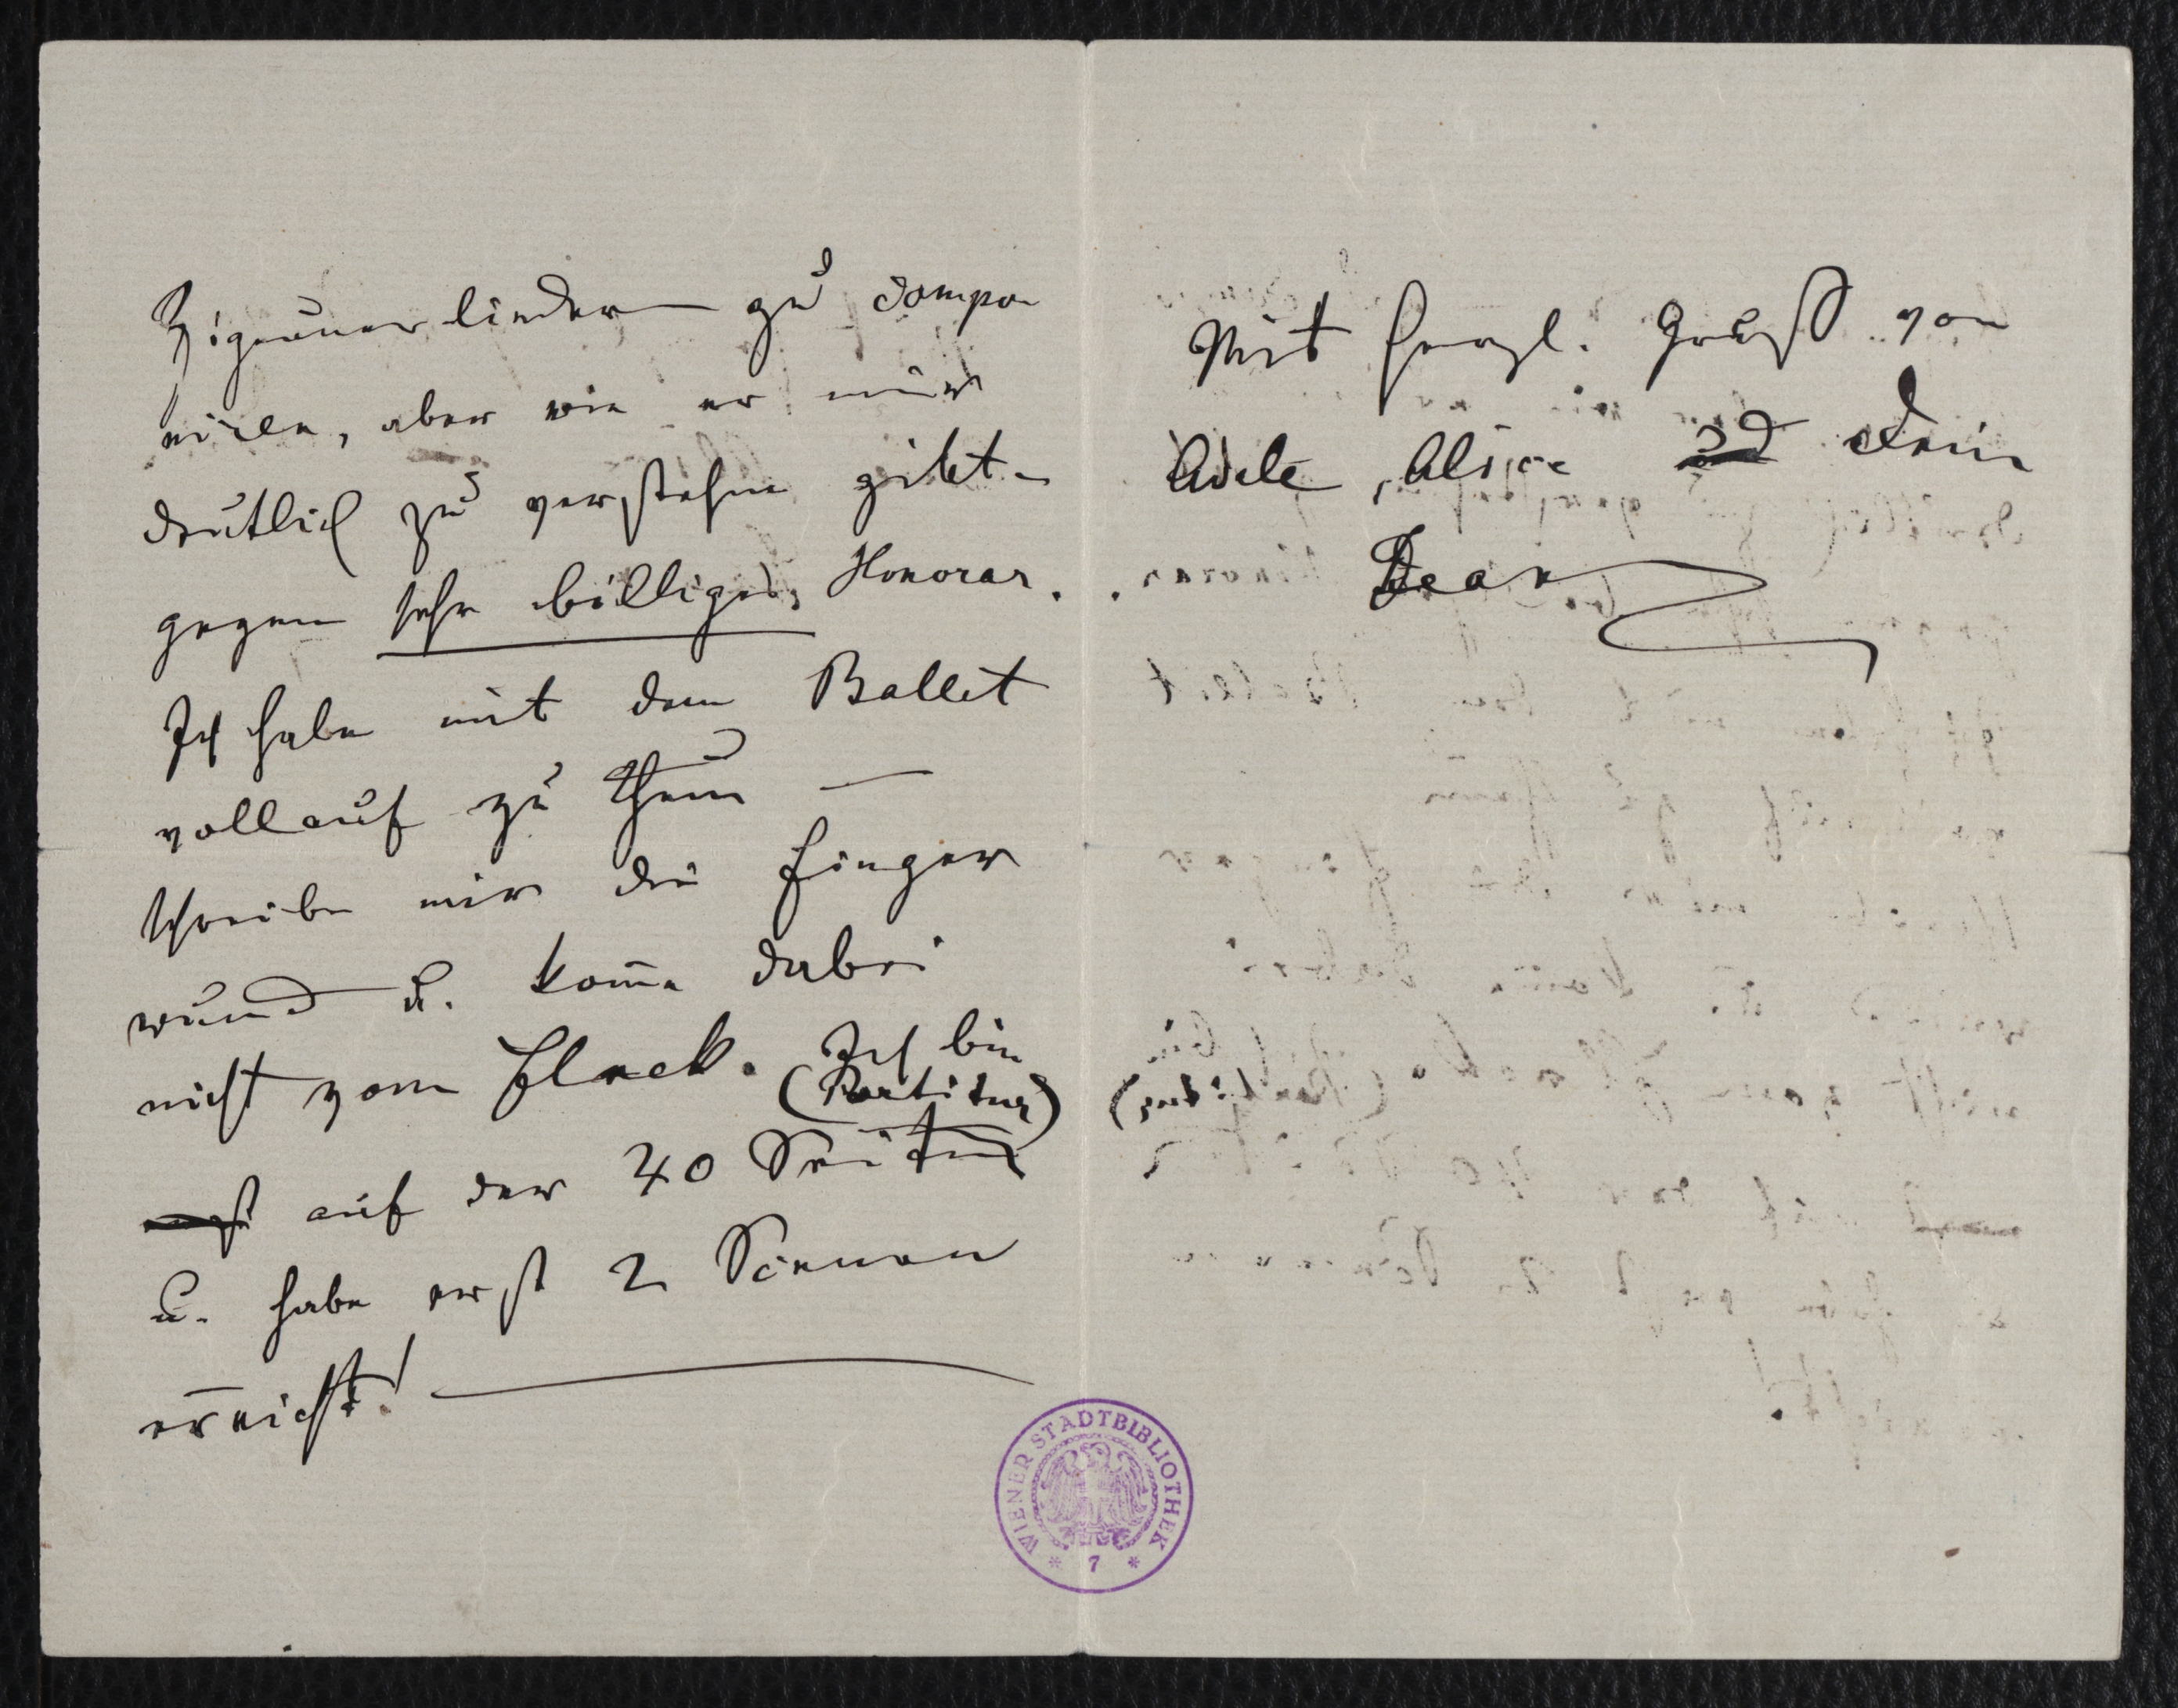 Zigeunerlieder zu compo
niren, aber wie er mir
deutlich zu verstehn gibt –
gegen sehr billiges Honorar.
Ich habe mit dem Ballet
vollauf zu thun —
schreibe mir die Finger
wund u. kom̅e dabei
nicht vom Fleck. Ich bin
(Partitur)
auf der 40 Seite
u. habe erst 2 Scenen
erreicht!
Mit herzl. Gruß von
Adele, Alice und Dein
Jean
WIENER STADTBIBLIOTHEK
* 7 *